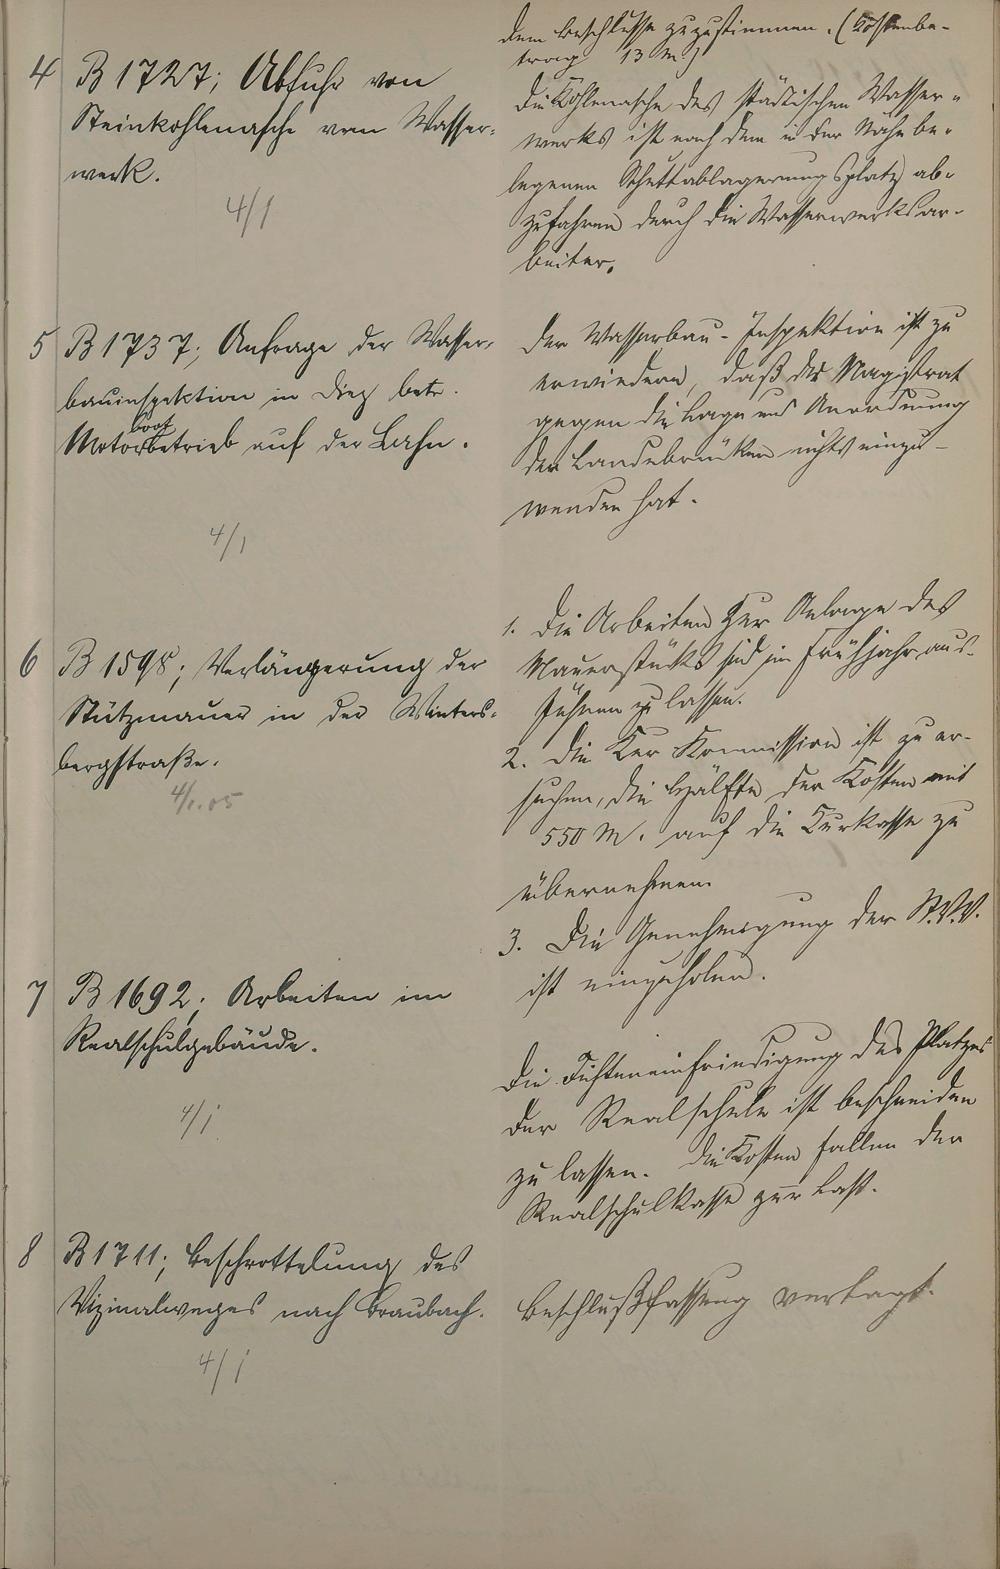 dem Beschlusse zuzustimmen. (Kostenbe-
trag 13 M.)
4 B 1727; Abfuhr von
Steinkohlenasche vom Wasser-
werk.
4/1
Die Kohlenasche des städtischen Wasser-
werks ist nach dem in der Nähe be-
legenen Schuttablagerungsplatz ab-
zufahren durch die Wasserwerksar-
beiter.
5 B 1737; Anfrage der Wasser-
bauinspektion in Diez betr.
Motorbootbetrieb auf der Lahn.
4/1
Der Wasserbau-Inspektion ist zu
erwiedern, daß der Magistrat
gegen die Lage und Anordnung
der Landebrücken nichts einzu-
wenden hat.
6 B 1598; Verlängerung der
Stützmauer in der Winters-
bergstraße.
4/1.05
1. Die Arbeiten zur Anlage des
Mauerstücks sind im Frühjahr aus-
führen zu lassen.
2. Die Kur Kommission ist zu er-
suchen, die Hälfte der Kosten mit
550 M. auf die Kurkasse zu
übernehmen.
3. Die Genehmigung der St.V.V.
ist einzuholen.
7 B 1692; Arbeiten im
Realschulgebäude.
4/1
Die Fichteneinfriedigung des Platzes
der Realschule ist beschneiden
zu lassen. Die Kosten fallen der
Realschulkasse zur Last.
8 B 1711; Beschrottelung des
Vizinalweges nach Braubach.
4/1
Beschlußfassung vertagt.